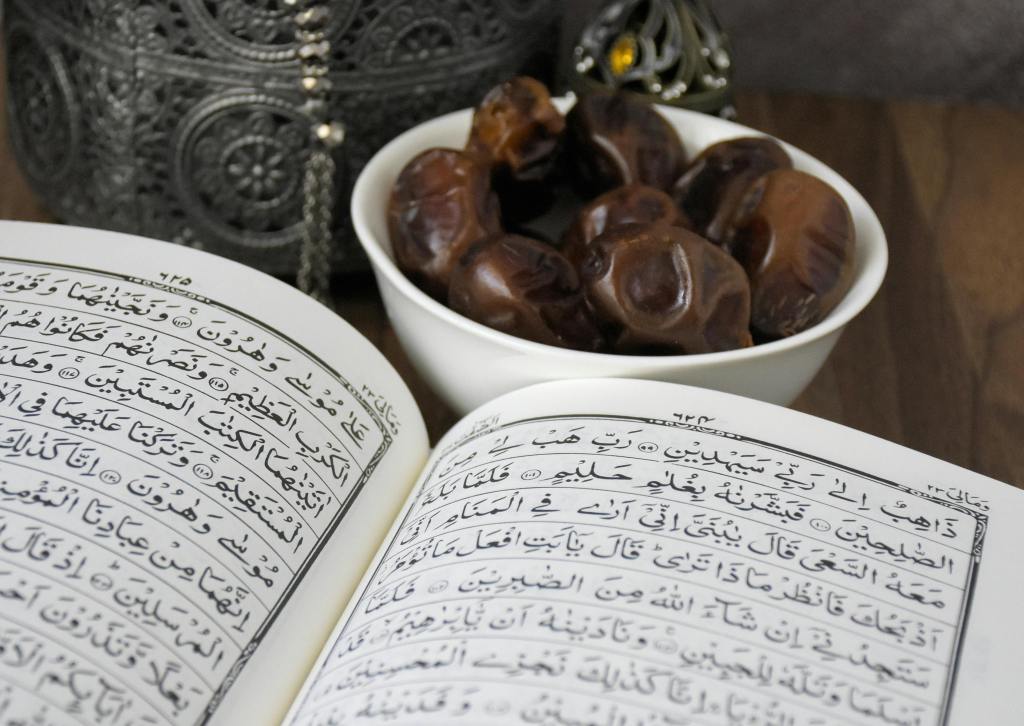 وَمَالِىَ ٢٣ ٦٢٤ الصّٰٓفّٰت
ذَاهِبٌ اِلٰى رَبِّيْ سَيَهْدِيْنِ ﴿٩٩﴾ رَبِّ هَبْ لِيْ مِنَ
الصّٰلِحِيْنَ ﴿١٠٠﴾ فَبَشَّرْنٰهُ بِغُلٰمٍ حَلِيْمٍ ﴿١٠١﴾ فَلَمَّا بَلَغَ
مَعَهُ السَّعْيَ قَالَ يٰبُنَيَّ اِنِّيْٓ اَرٰى فِي الْمَنَامِ اَنِّيْٓ
اَذْبَحُكَ فَانْظُرْ مَاذَا تَرٰى ؕ قَالَ يٰٓاَبَتِ افْعَلْ مَا تُؤْمَرُ
سَتَجِدُنِيْٓ اِنْ شَآءَ اللّٰهُ مِنَ الصّٰبِرِيْنَ ﴿١٠٢﴾ فَلَمَّآ
اَسْلَمَا وَتَلَّهٗ لِلْجَبِيْنِ ﴿١٠٣﴾ وَنَادَيْنٰهُ اَنْ يّٰٓاِبْرٰهِيْمُ ﴿١٠٤﴾ قَدْ
اِنَّا كَذٰلِكَ نَجْزِي الْمُحْسِنِيْنَ
وَفَدَيْنٰهُ
٦٢٥ وَمَالِىَ ٢٣
عَلٰى مُوْسٰى وَهٰرُوْنَ ﴿١١٤﴾ وَنَجَّيْنٰهُمَا وَقَوْمَ
الْكَرْبِ الْعَظِيْمِ ﴿١١٥﴾ وَنَصَرْنٰهُمْ فَكَانُوْا هُمُ
اٰتَيْنٰهُمَا الْكِتٰبَ الْمُسْتَبِيْنَ ﴿١١٧﴾ وَهَدَ
الْمُسْتَقِيْمَ ﴿١١٨﴾ وَتَرَكْنَا عَلَيْهِمَا فِي الْا
مُوْسٰى وَهٰرُوْنَ ﴿١٢٠﴾ اِنَّا كَذٰلِكَ
اِنَّهُمَا مِنْ عِبَادِنَا الْمُؤْمِنِ
الْمُرْسَلِيْنَ ﴿١٢٣﴾ اِذْ قَالَ
بَعْلًا وَّتَذَرُوْنَ اَحْسَ
اٰبَآئِكُمُ الْاَ